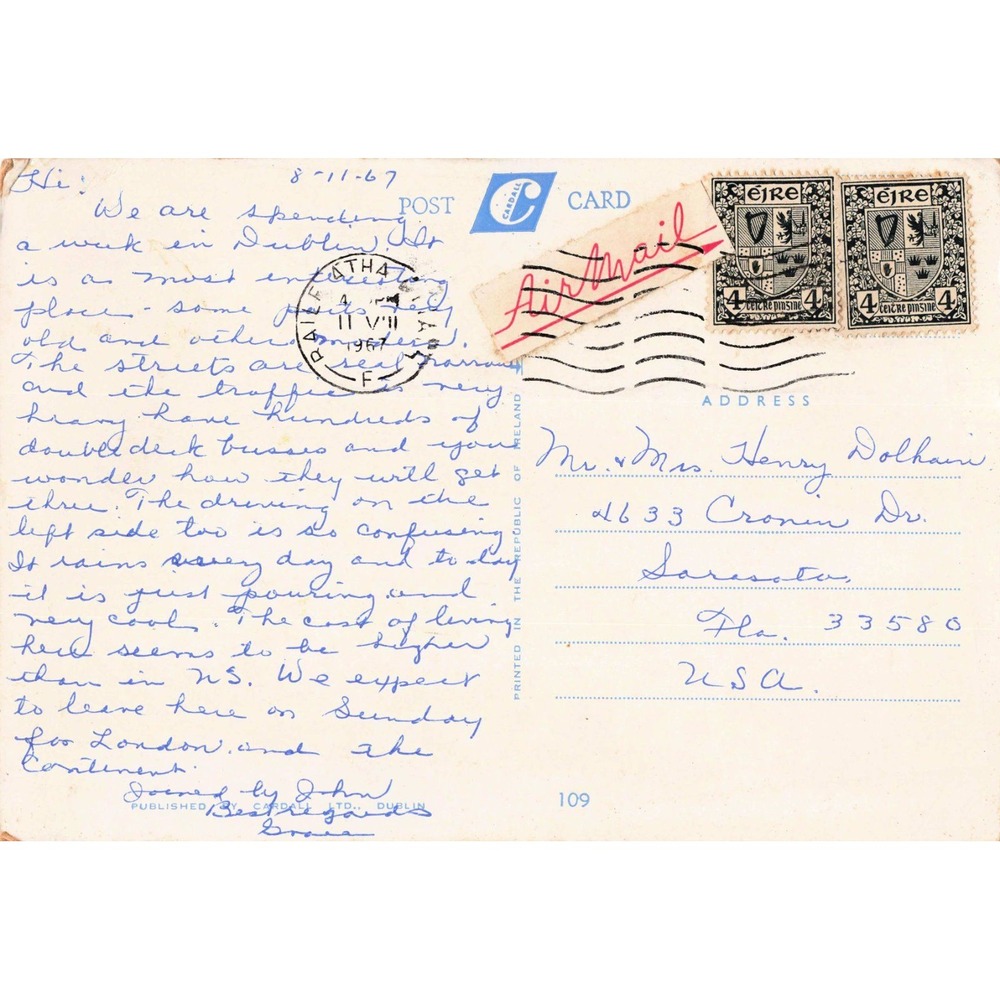 Hi! 8-11-67
We are spending
a week in Dublin. It
is a most interesting
place - some parts very
old and others modern.
The streets are real narrow
and the traffic is very
heavy have hundreds of
double deck busses and you
wonder how they will get
thru. The driving on the
left side too is so confusing
It rains every day and today
it is just pouring and
very cool. The cost of living
here seems to be higher
than in US. We expect
to leave here on Sunday
for London and the
Continent.
Joined by John
Best regards
Grace
PUBLISHED BY CARDALL LTD., DUBLIN
POST CARD
CARDALL
Air Mail
BAILE ÁTHA
11 VIII
1967
F
ÉIRE
4 4
ceitre pinsine
ÉIRE
4 4
ceitre pinsine
PRINTED IN THE REPUBLIC OF IRELAND
ADDRESS
Mr. & Mrs. Henry Dolhain
4633 Cronin Dr.
Sarasota,
Fla. 33580
USA.
109